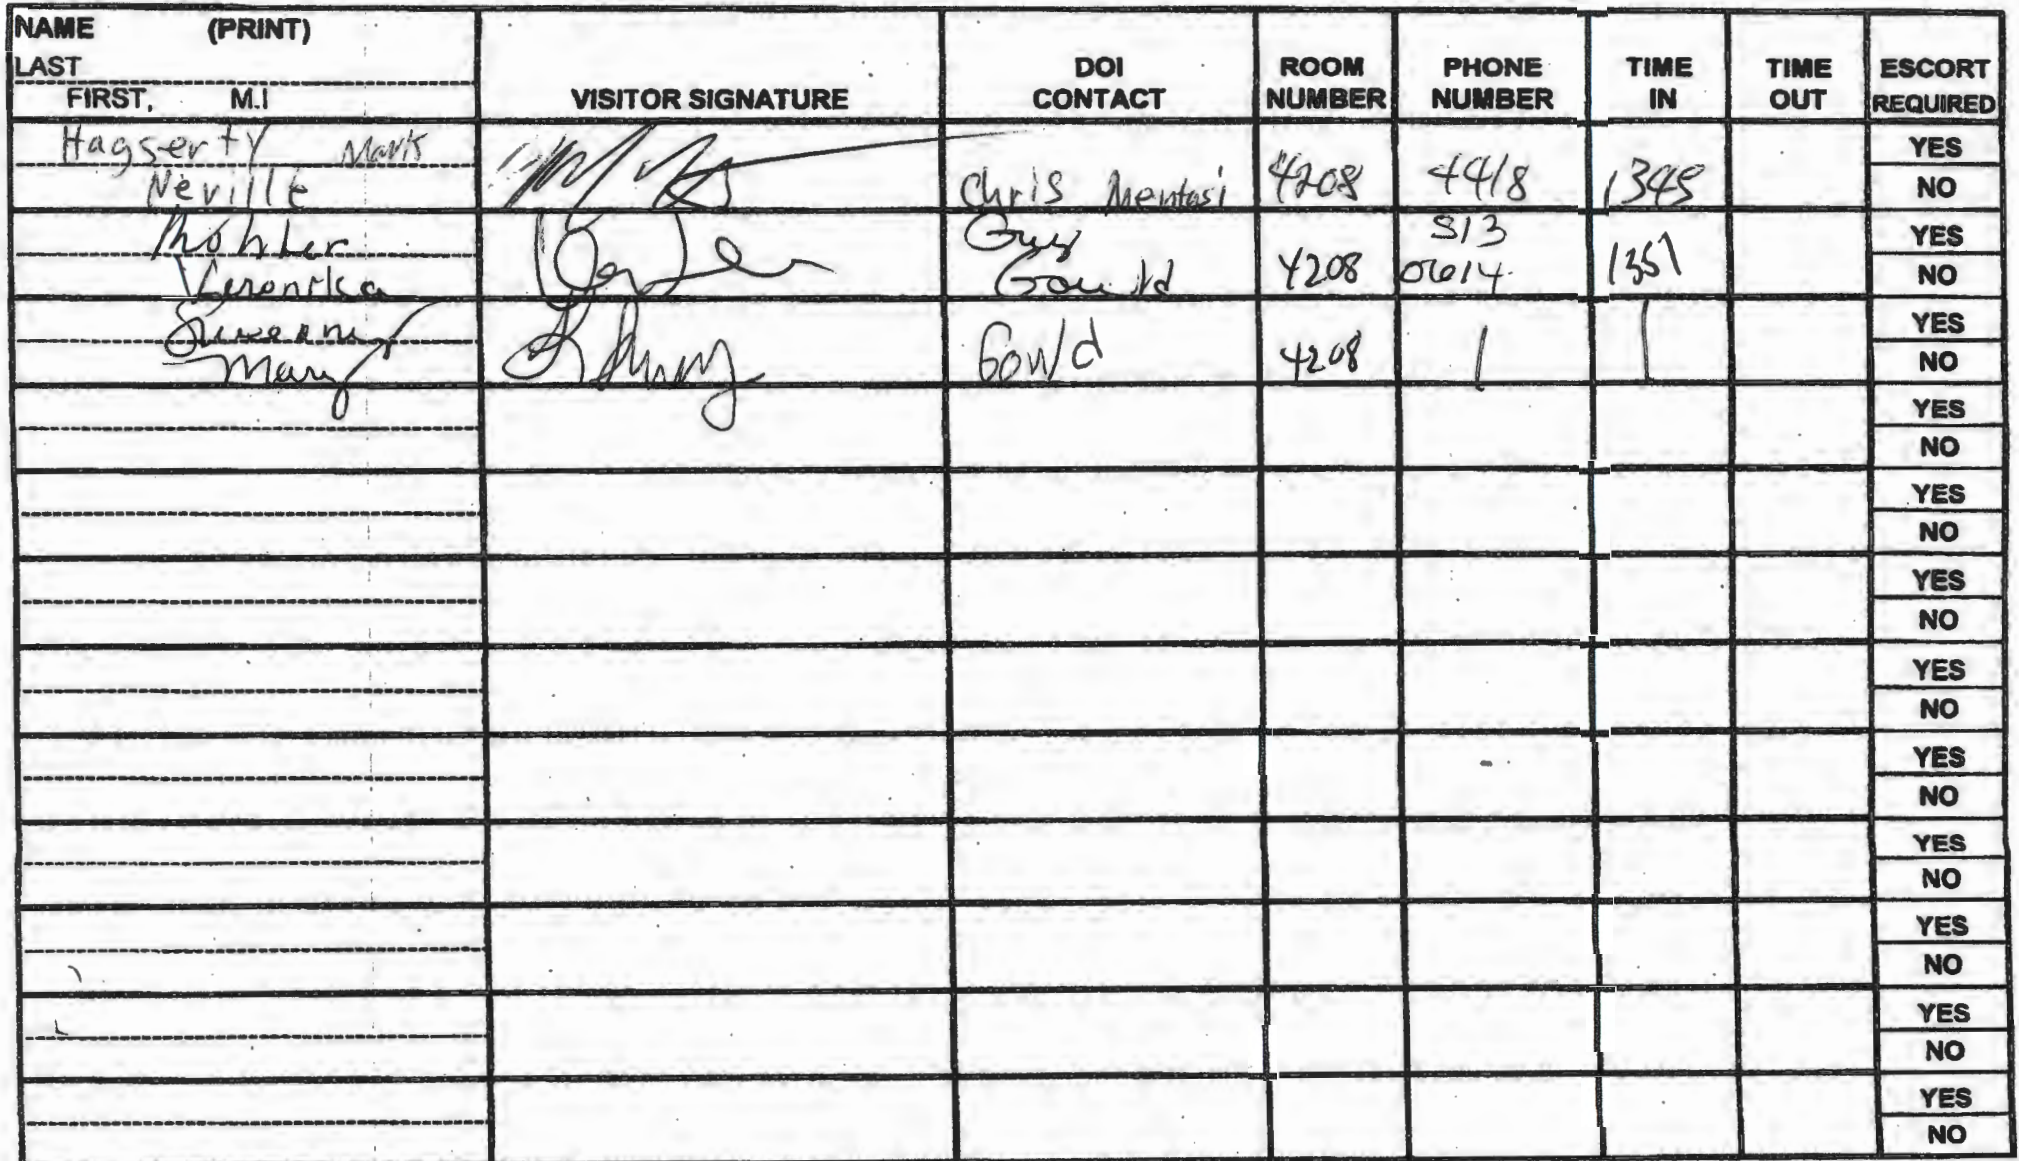 NAME (PRINT)
LAST
FIRST, M.I
VISITOR SIGNATURE
DOI CONTACT
ROOM NUMBER
PHONE NUMBER
TIME IN
TIME OUT
ESCORT REQUIRED
Hagserty Mark
Neville
Chris
4208
4418
1345
YES
NO
Kohler
Guy
Gould
4208
513
1351
YES
NO
Mary
Gould
4208
YES
NO
YES
NO
YES
NO
YES
NO
YES
NO
YES
NO
YES
NO
YES
NO
YES
NO
YES
NO